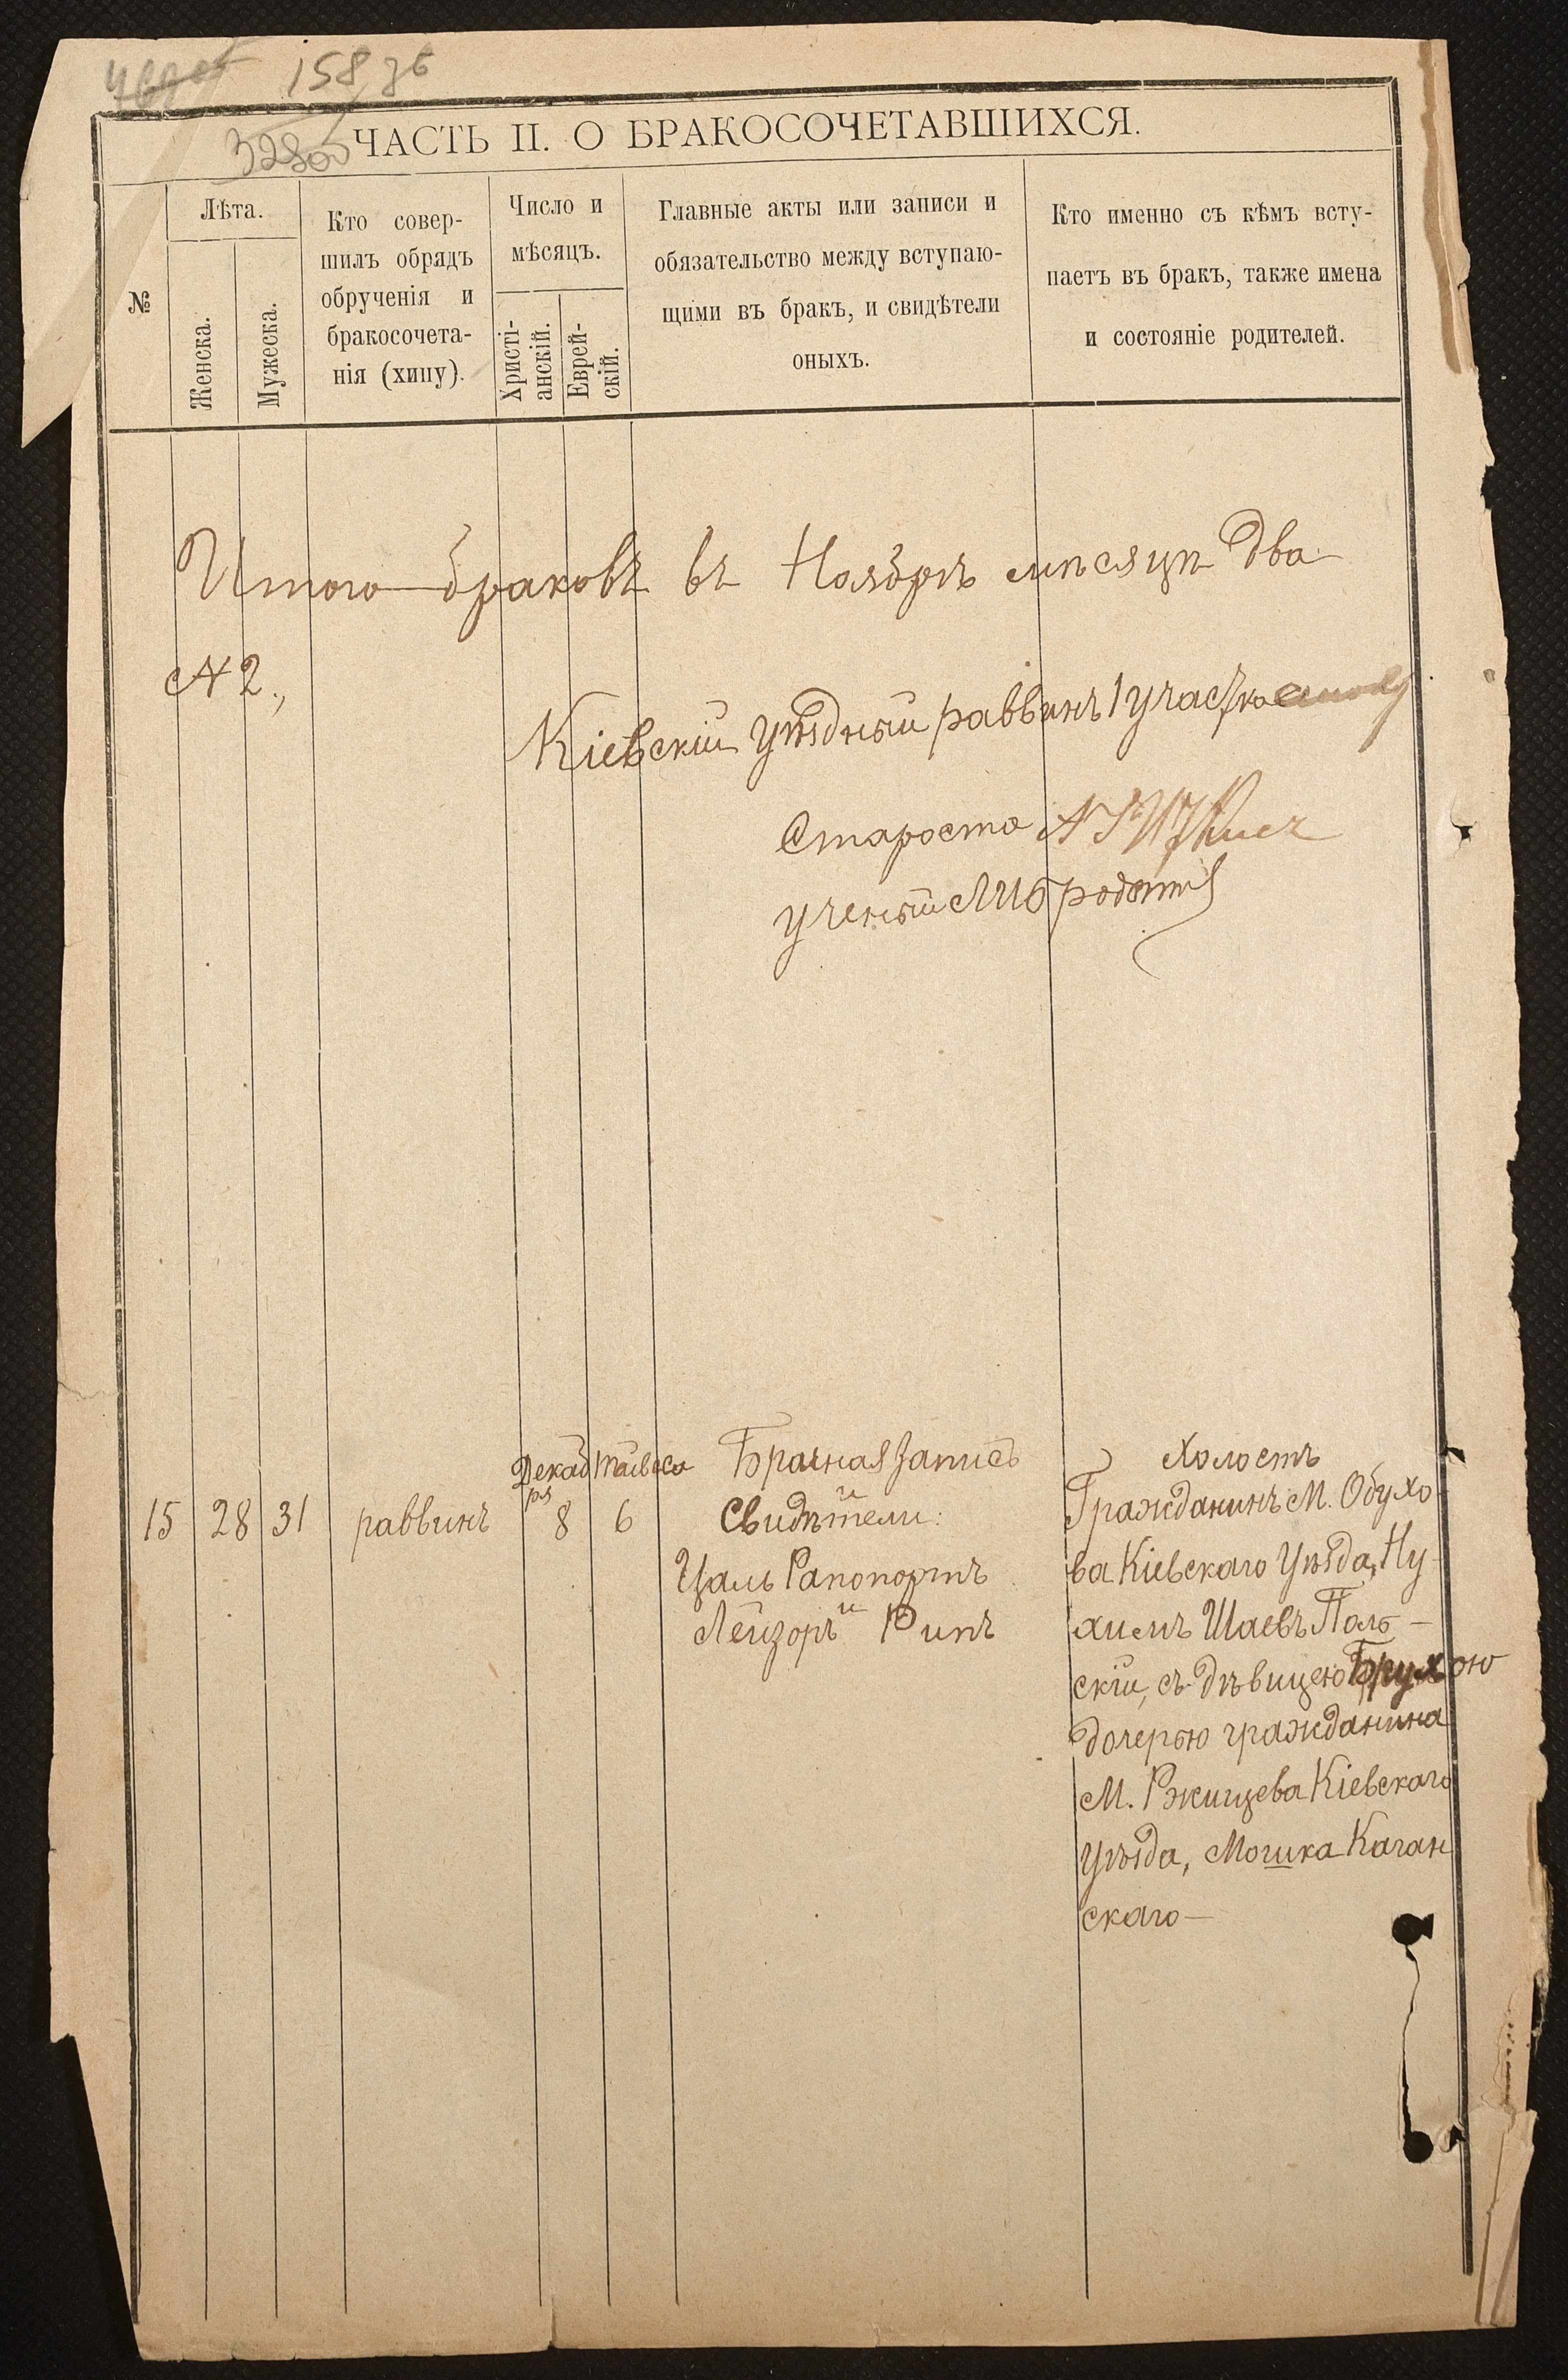 158 36
ЧАСТЬ II. О БРАКОСОЧЕТАВШИХСЯ.
№
Лѣта.
Женска.
Мужеска.
Кто совер-
шилъ обрядъ
обрученія и
бракосочета-
нія (хипу).
Число и
мѣсяцъ.
Христі-
анскій.
Еврей-
скій.
Главные акты или записи и
обязательство между вступаю-
щими въ бракъ, и свидѣтели
оныхъ.
Кто именно съ кѣмъ всту-
паетъ въ бракъ, также имена
и состояніе родителей.
Итого браковъ въ Ноябрѣ мѣсяцѣ два
№ 2.,
Кіевскій уѣздный раввинъ 1 участка
Староста
ученый
15 28 31 раввинъ
Декаб
ря
8
6
Брачная запись
и
Свидѣтели:
Цаль Рапопортъ
и
Лейзоръ Рипъ
Холостъ
Гражданинъ М. Обухо
ва Кіевскаго Уѣзда, Ну
химъ Шаевъ Поль-
скій, съ дѣвицею Брухою
дочерью гражданина
М. Ржищева Кіевскаго
Уѣзда, Мошка Каган
скаго-